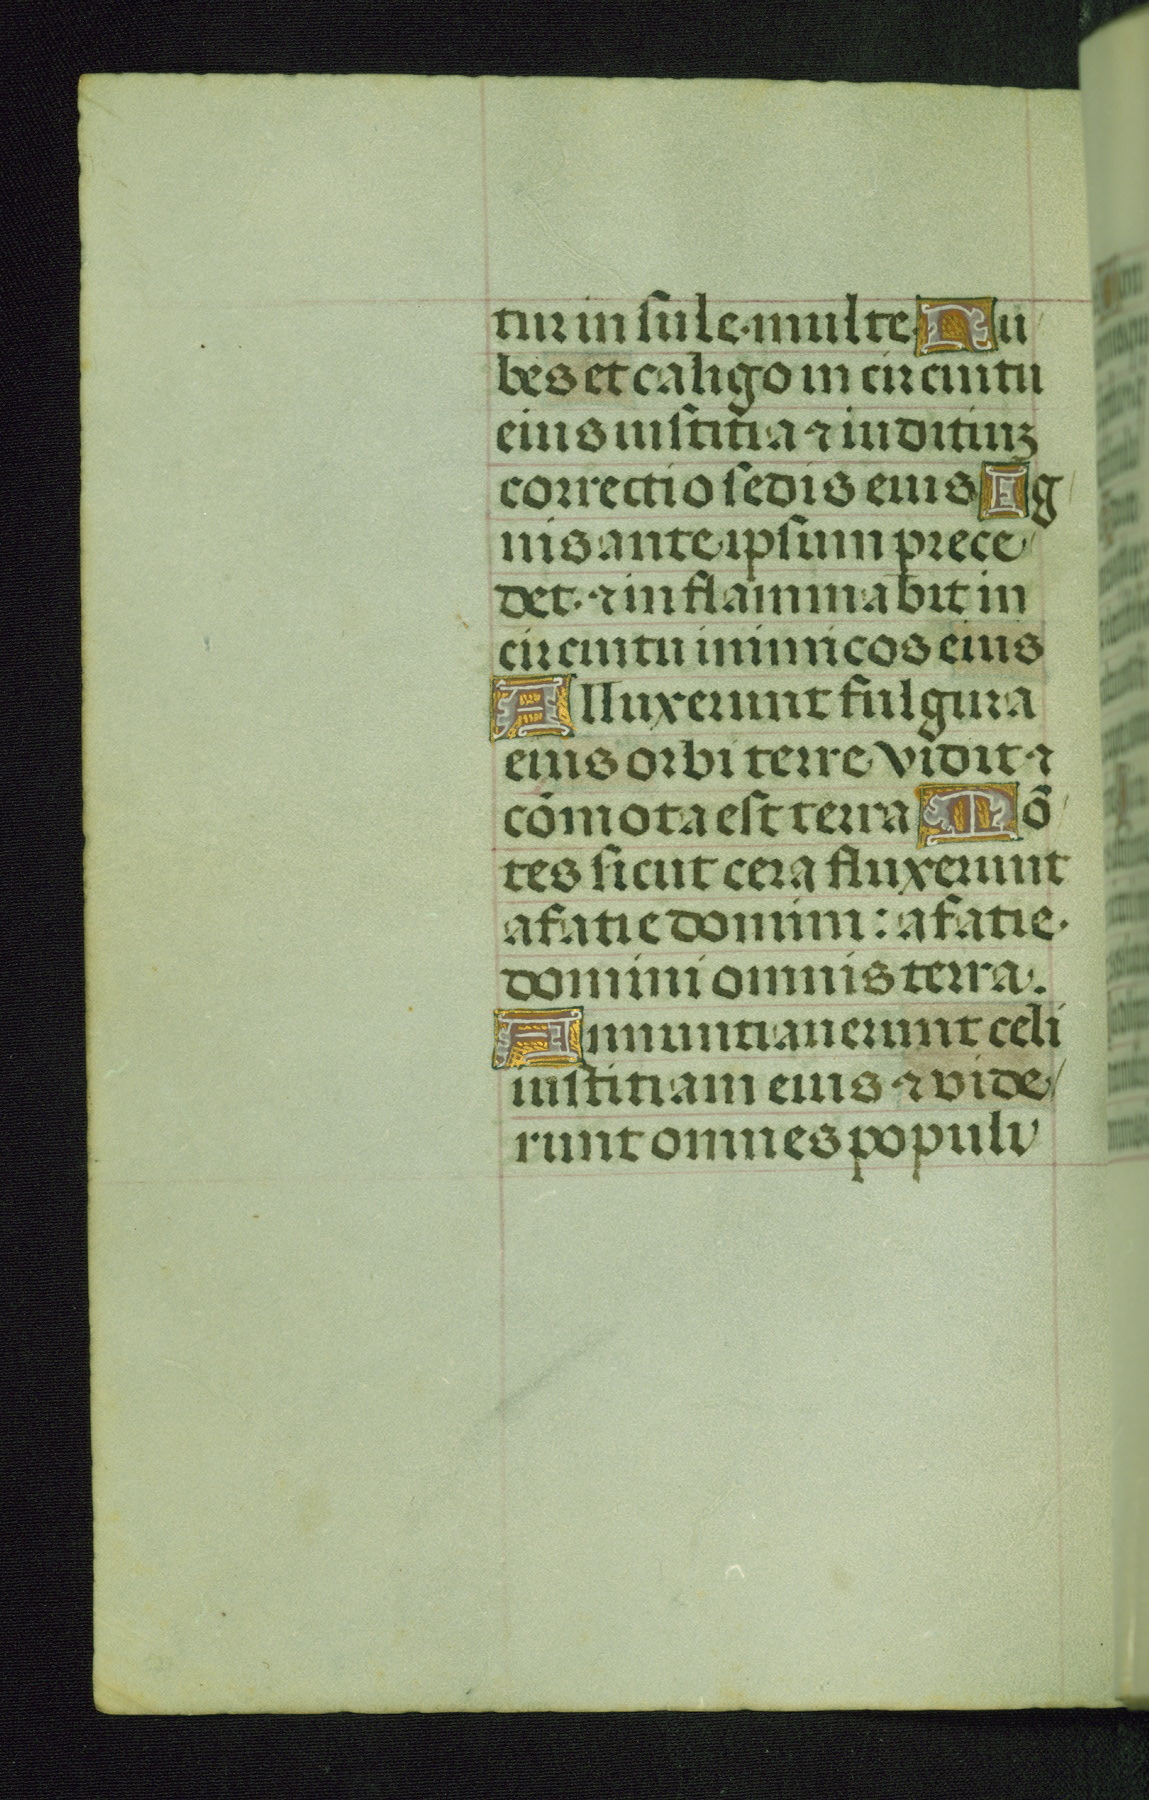 tur insule multe Nu
bes et caligo in circuitu
eius iustitia ⁊ iuditiuʒ
correctio sedis eius Ig
nis ante ipsum prece
det ⁊ inflammabit in
circuitu inimicos eius
Alluxerunt fulgura
eius orbi terre vidit ⁊
cōmota est terra Mō
tes sicut cera fluxerunt
a fatie domini : a fatie
domini omnis terra.
Annuntiauerunt celi
iustitiam eius ⁊ vide
runt omnes populi